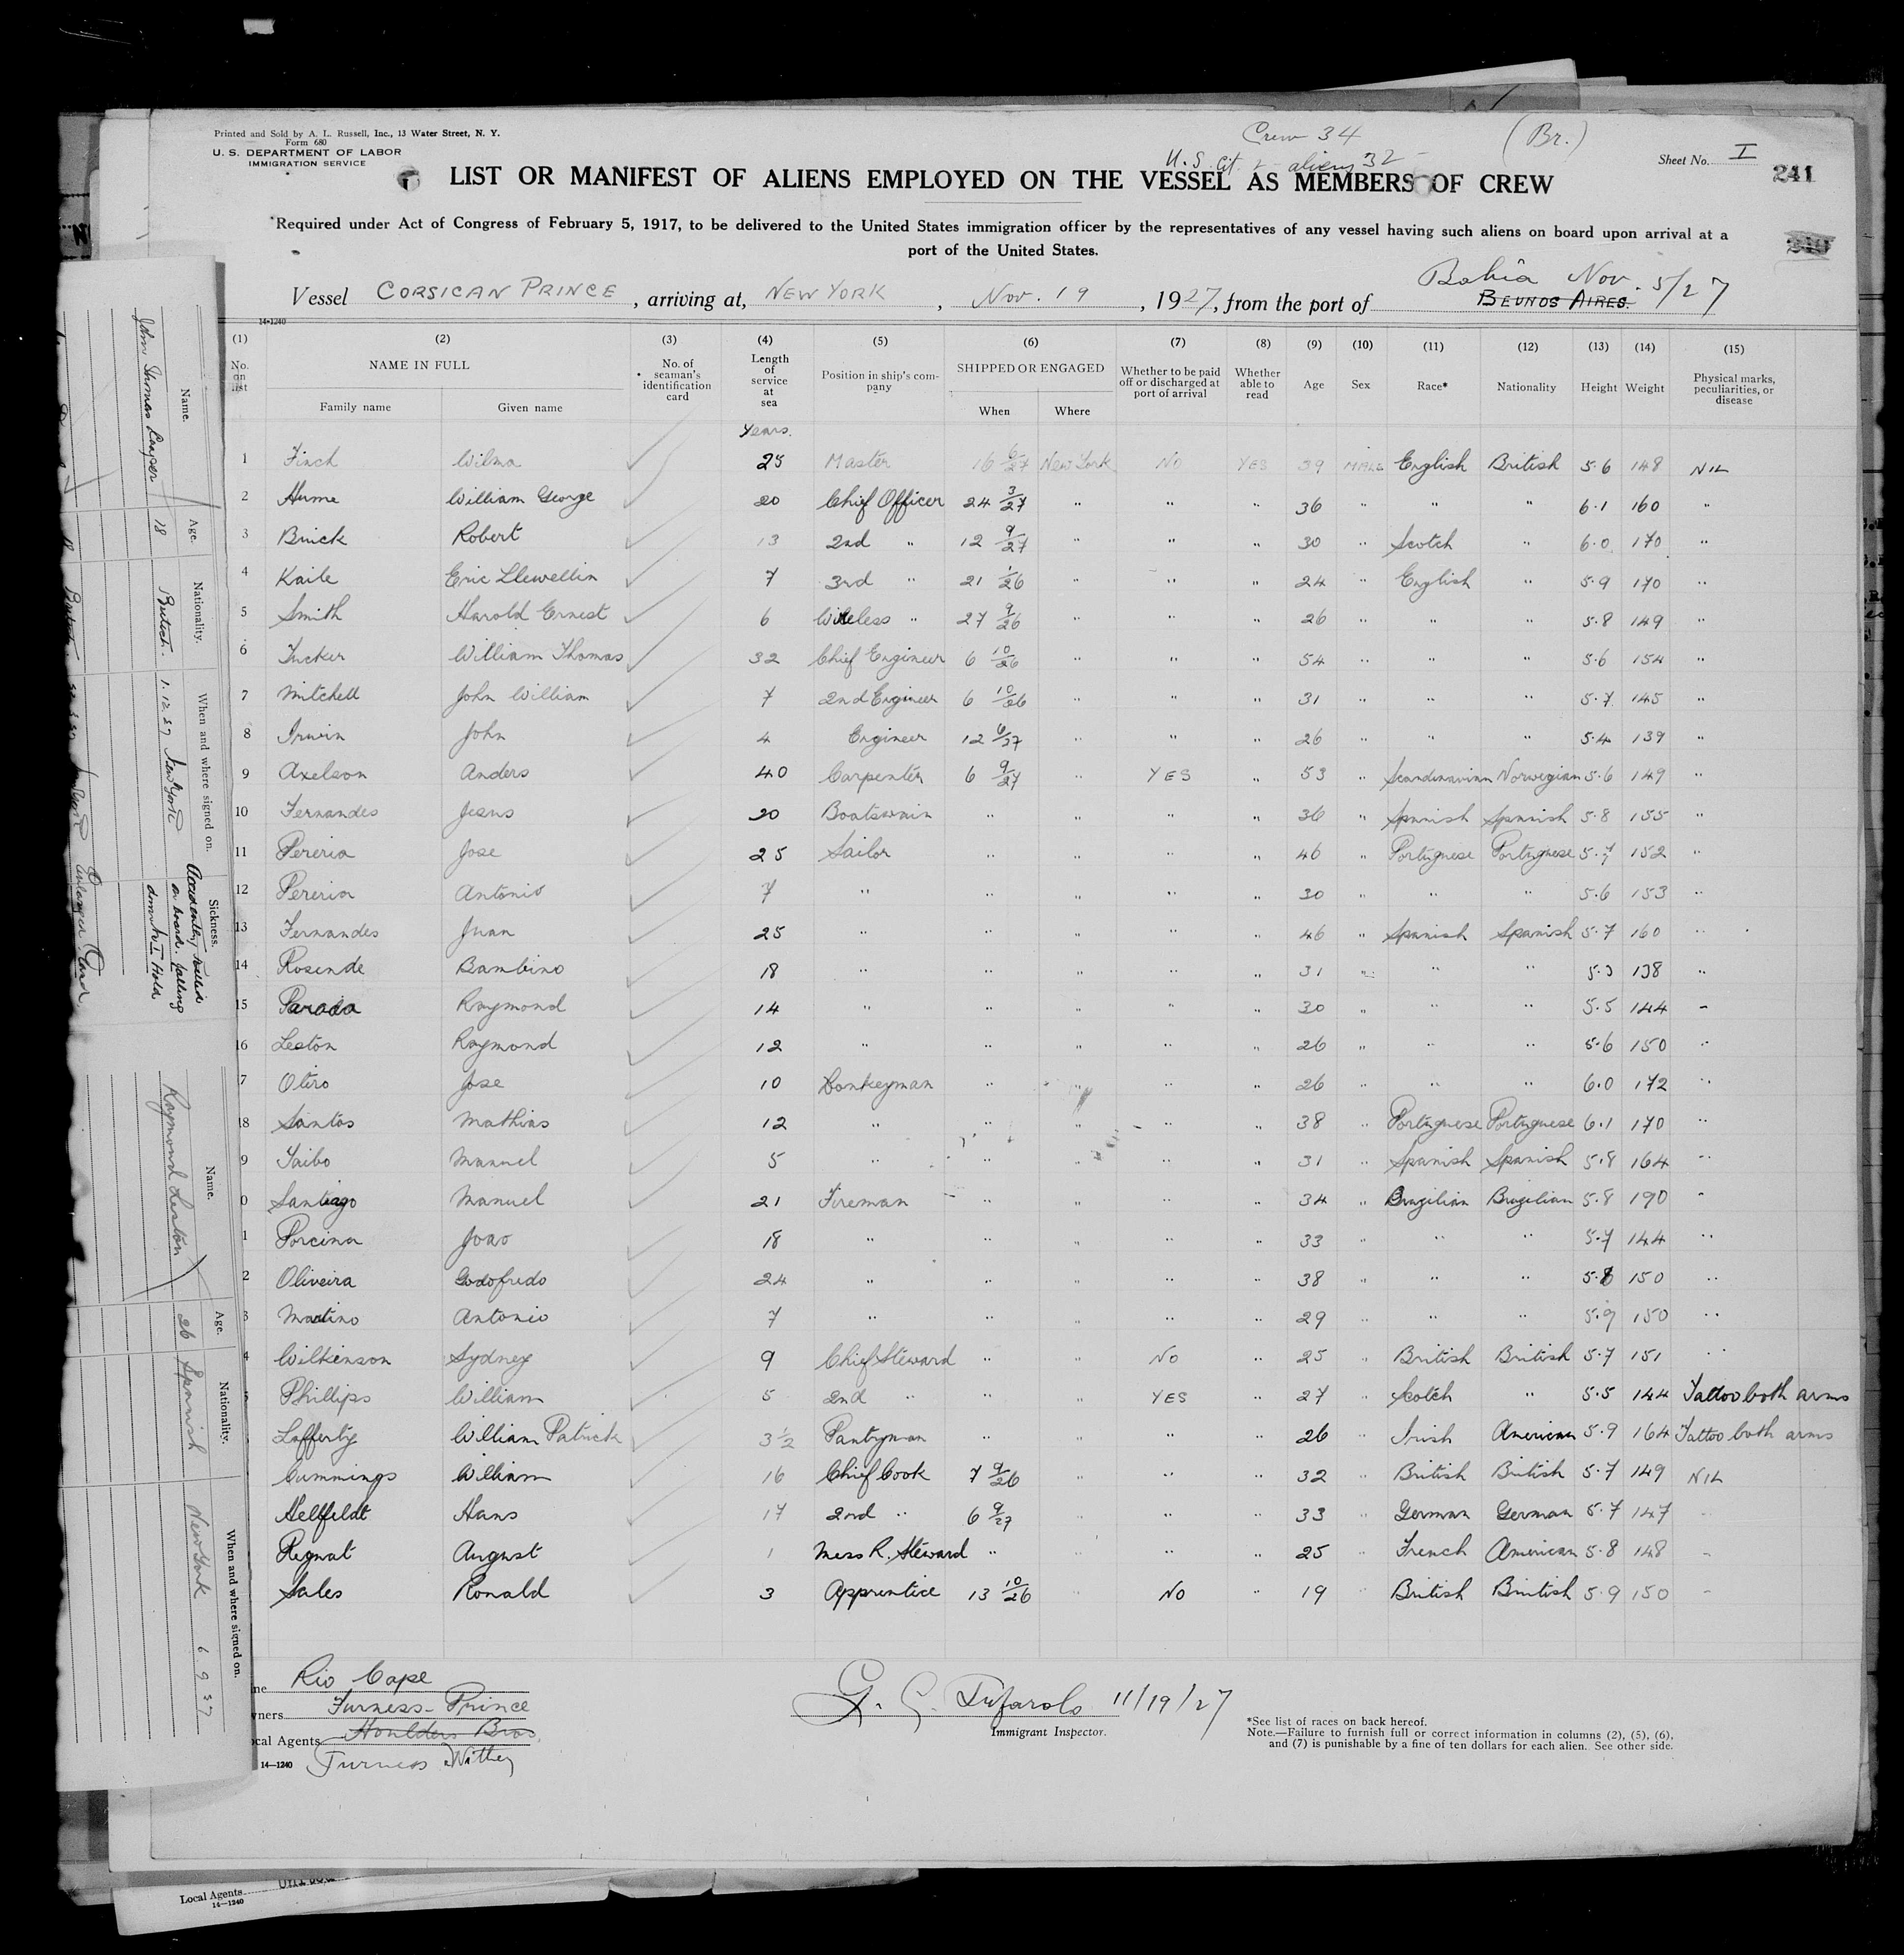 Printed and Sold by A. L. Russell, Inc., 13 Water Street, N. Y.
Form 680
U. S. DEPARTMENT OF LABOR
IMMIGRATION SERVICE
Crew 34
(Br.)
U.S. cit. 2 - aliens 32 -
Sheet No. I
241
LIST OR MANIFEST OF ALIENS EMPLOYED ON THE VESSEL AS MEMBERS OF CREW
Required under Act of Congress of February 5, 1917, to be delivered to the United States immigration officer by the representatives of any vessel having such aliens on board upon arrival at a
port of the United States.
240
Bahia Nov. 5/27
Vessel CORSICAN PRINCE, arriving at, NEW YORK, Nov. 19, 1927, from the port of BEUNOS AIRES.
14-1240
(1) (2) (3) (4) (5) (6) (7) (8) (9) (10) (11) (12) (13) (14) (15)
No. on list NAME IN FULL No. of seaman's identification card Length of service at sea Position in ship's company SHIPPED OR ENGAGED Whether to be paid off or discharged at port of arrival Whether able to read Age Sex Race* Nationality Height Weight Physical marks, peculiarities, or disease
Family name Given name When Where
Years.
1 Finch Wilma 25 Master 16 6/27 New York NO YES 39 MALE English British 5.6 148 NIL
2 Hume William George 20 Chief Officer 24 3/27 " " " 36 " " " 6.1 160 "
3 Buick Robert 13 2nd " 12 9/27 " " " 30 " Scotch " 6.0 170 "
4 Kaile Eric Llewellin 7 3rd " 21 1/26 " " " 24 " English " 5.9 170 "
5 Smith Harold Ernest 6 Wireless " 27 9/26 " " " 26 " " " 5.8 149 "
6 Tucker William Thomas 32 Chief Engineer 6 10/26 " " " 54 " " " 5.6 154 "
7 Mitchell John William 7 2nd Engineer 6 10/26 " " " 31 " " " 5.7 145 "
8 Irwin John 4 Engineer 12 6/27 " " " 26 " " " 5.4 139 "
9 Axelson Anders 40 Carpenter 6 9/27 " YES " 53 " Scandinavian Norwegian 5.6 149 "
10 Fernandes Jesus 20 Boatswain " " " " 36 " Spanish Spanish 5.8 155 "
11 Pereria Jose 25 Sailor " " " " 46 " Portuguese Portuguese 5.7 152 "
12 Pereria Antonio 7 " " " " " 30 " " " 5.6 153 "
13 Fernandes Juan 25 " " " " " 46 " Spanish Spanish 5.7 160 "
14 Rosende Bambino 18 " " " " " 31 " " " 5.3 138 "
15 Parada Raymond 14 " " " " " 30 " " " 5.5 144 "
16 Leston Raymond 12 " " " " " 26 " " " 5.6 150 "
7 Otiro Jose 10 Donkeyman " " " " 26 " " " 6.0 172 "
18 Santos Mathias 12 " " " " " 38 " Portuguese Portuguese 6.1 170 "
9 Taibo Manuel 5 " " " " " 31 " Spanish Spanish 5.8 164 "
0 Santiago Manuel 21 Fireman " " " " 34 " Brazilian Brazilian 5.8 190 "
1 Porcina Joao 18 " " " " " 33 " " " 5.7 144 "
2 Oliveira Godofredo 24 " " " " " 38 " " " 5.8 150 "
3 Martino Antonio 7 " " " " " 29 " " " 5.9 150 "
4 Wilkinson Sydney 9 Chief Steward " " NO " 25 " British British 5.7 151 "
5 Phillips William 5 2nd " " " YES " 27 " Scotch " 5.5 144 Tattoo both arms
Lafferty William Patrick 3 1/2 Pantryman " " " " 26 " Irish American 5.9 164 Tattoo both arms
Cummings William 16 Chief Cook 7 9/26 " " " 32 " British British 5.7 149 NIL
Hellfeldt Hans 17 2nd " 6 9/27 " " " 33 " German German 5.7 147 "
Regnat August 1 Mess R. Steward " " " " 25 " French American 5.8 148 "
Sales Ronald 3 Apprentice 13 10/26 " NO " 19 " British British 5.9 150 "
ne Rio Cape
wners Furness-Prince
cal Agents Houlders Bros.
14-1240 Furness Withy
11/19/27
Immigrant Inspector.
*See list of races on back hereof.
Note.—Failure to furnish full or correct information in columns (2), (5), (6),
and (7) is punishable by a fine of ten dollars for each alien. See other side.
Name. Age. Nationality. When and where signed on. Sickness.
John Thomas 18 British. New York Accidentally killed
on board. falling
down No I Hold
Name. Age. Nationality. When and where signed on.
Raymond Leston 26 Spanish New York 6 9 27
Local Agents
14-1240